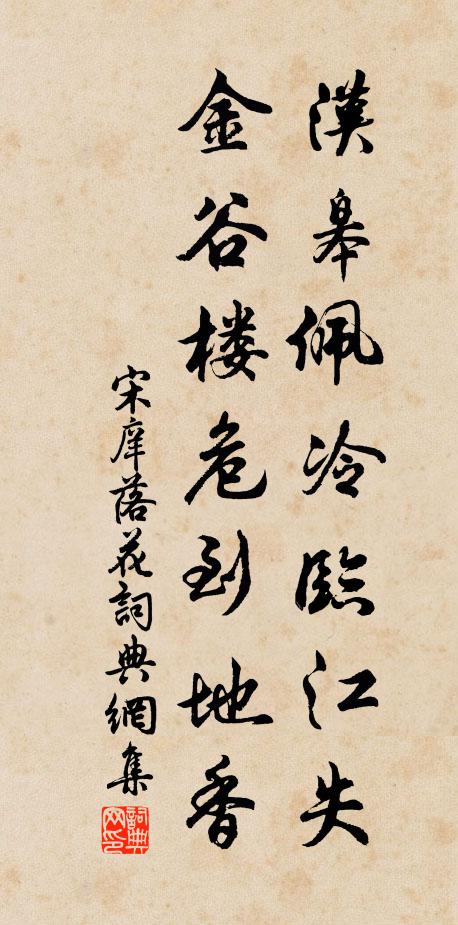 漢皋佩冷臨江失
金谷楼危到地香
宋庠落花詞典網集
詞典网印